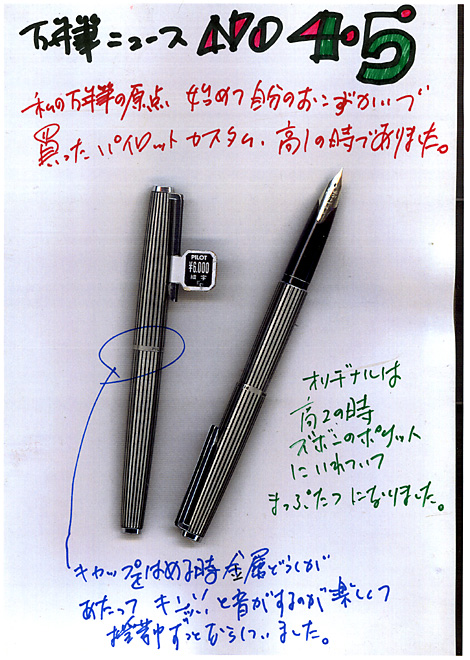 万年筆ニュース 45
私の万年筆の原点、始めて自分のおこずかいで
買ったパイロットカスタム、高1の時でありました。
PILOT
¥6,000
細字
オリヂナルは
高2の時
ズボンのポケット
にいれていて
まっぷたつになりました。
キャップをはめる時金属どうしが
あたって キンッ と音がするのが楽しくて
授業中ずっとならしていました。